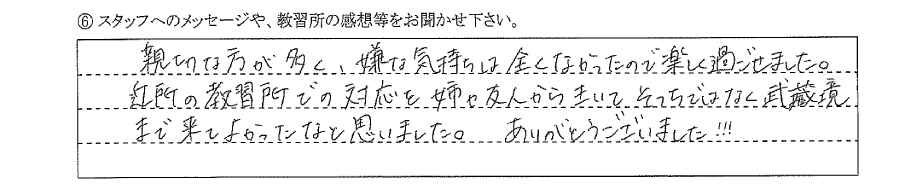 ⑥ スタッフへのメッセージや、教習所の感想等をお聞かせ下さい。
親切な方が多く、嫌な気持ちは全くなかったので楽しく過ごせました。
近所の教習所での対応を姉や友人からきいて、そっちではなく武蔵境
まで来てよかったなと思いました。 ありがとうございました!!!